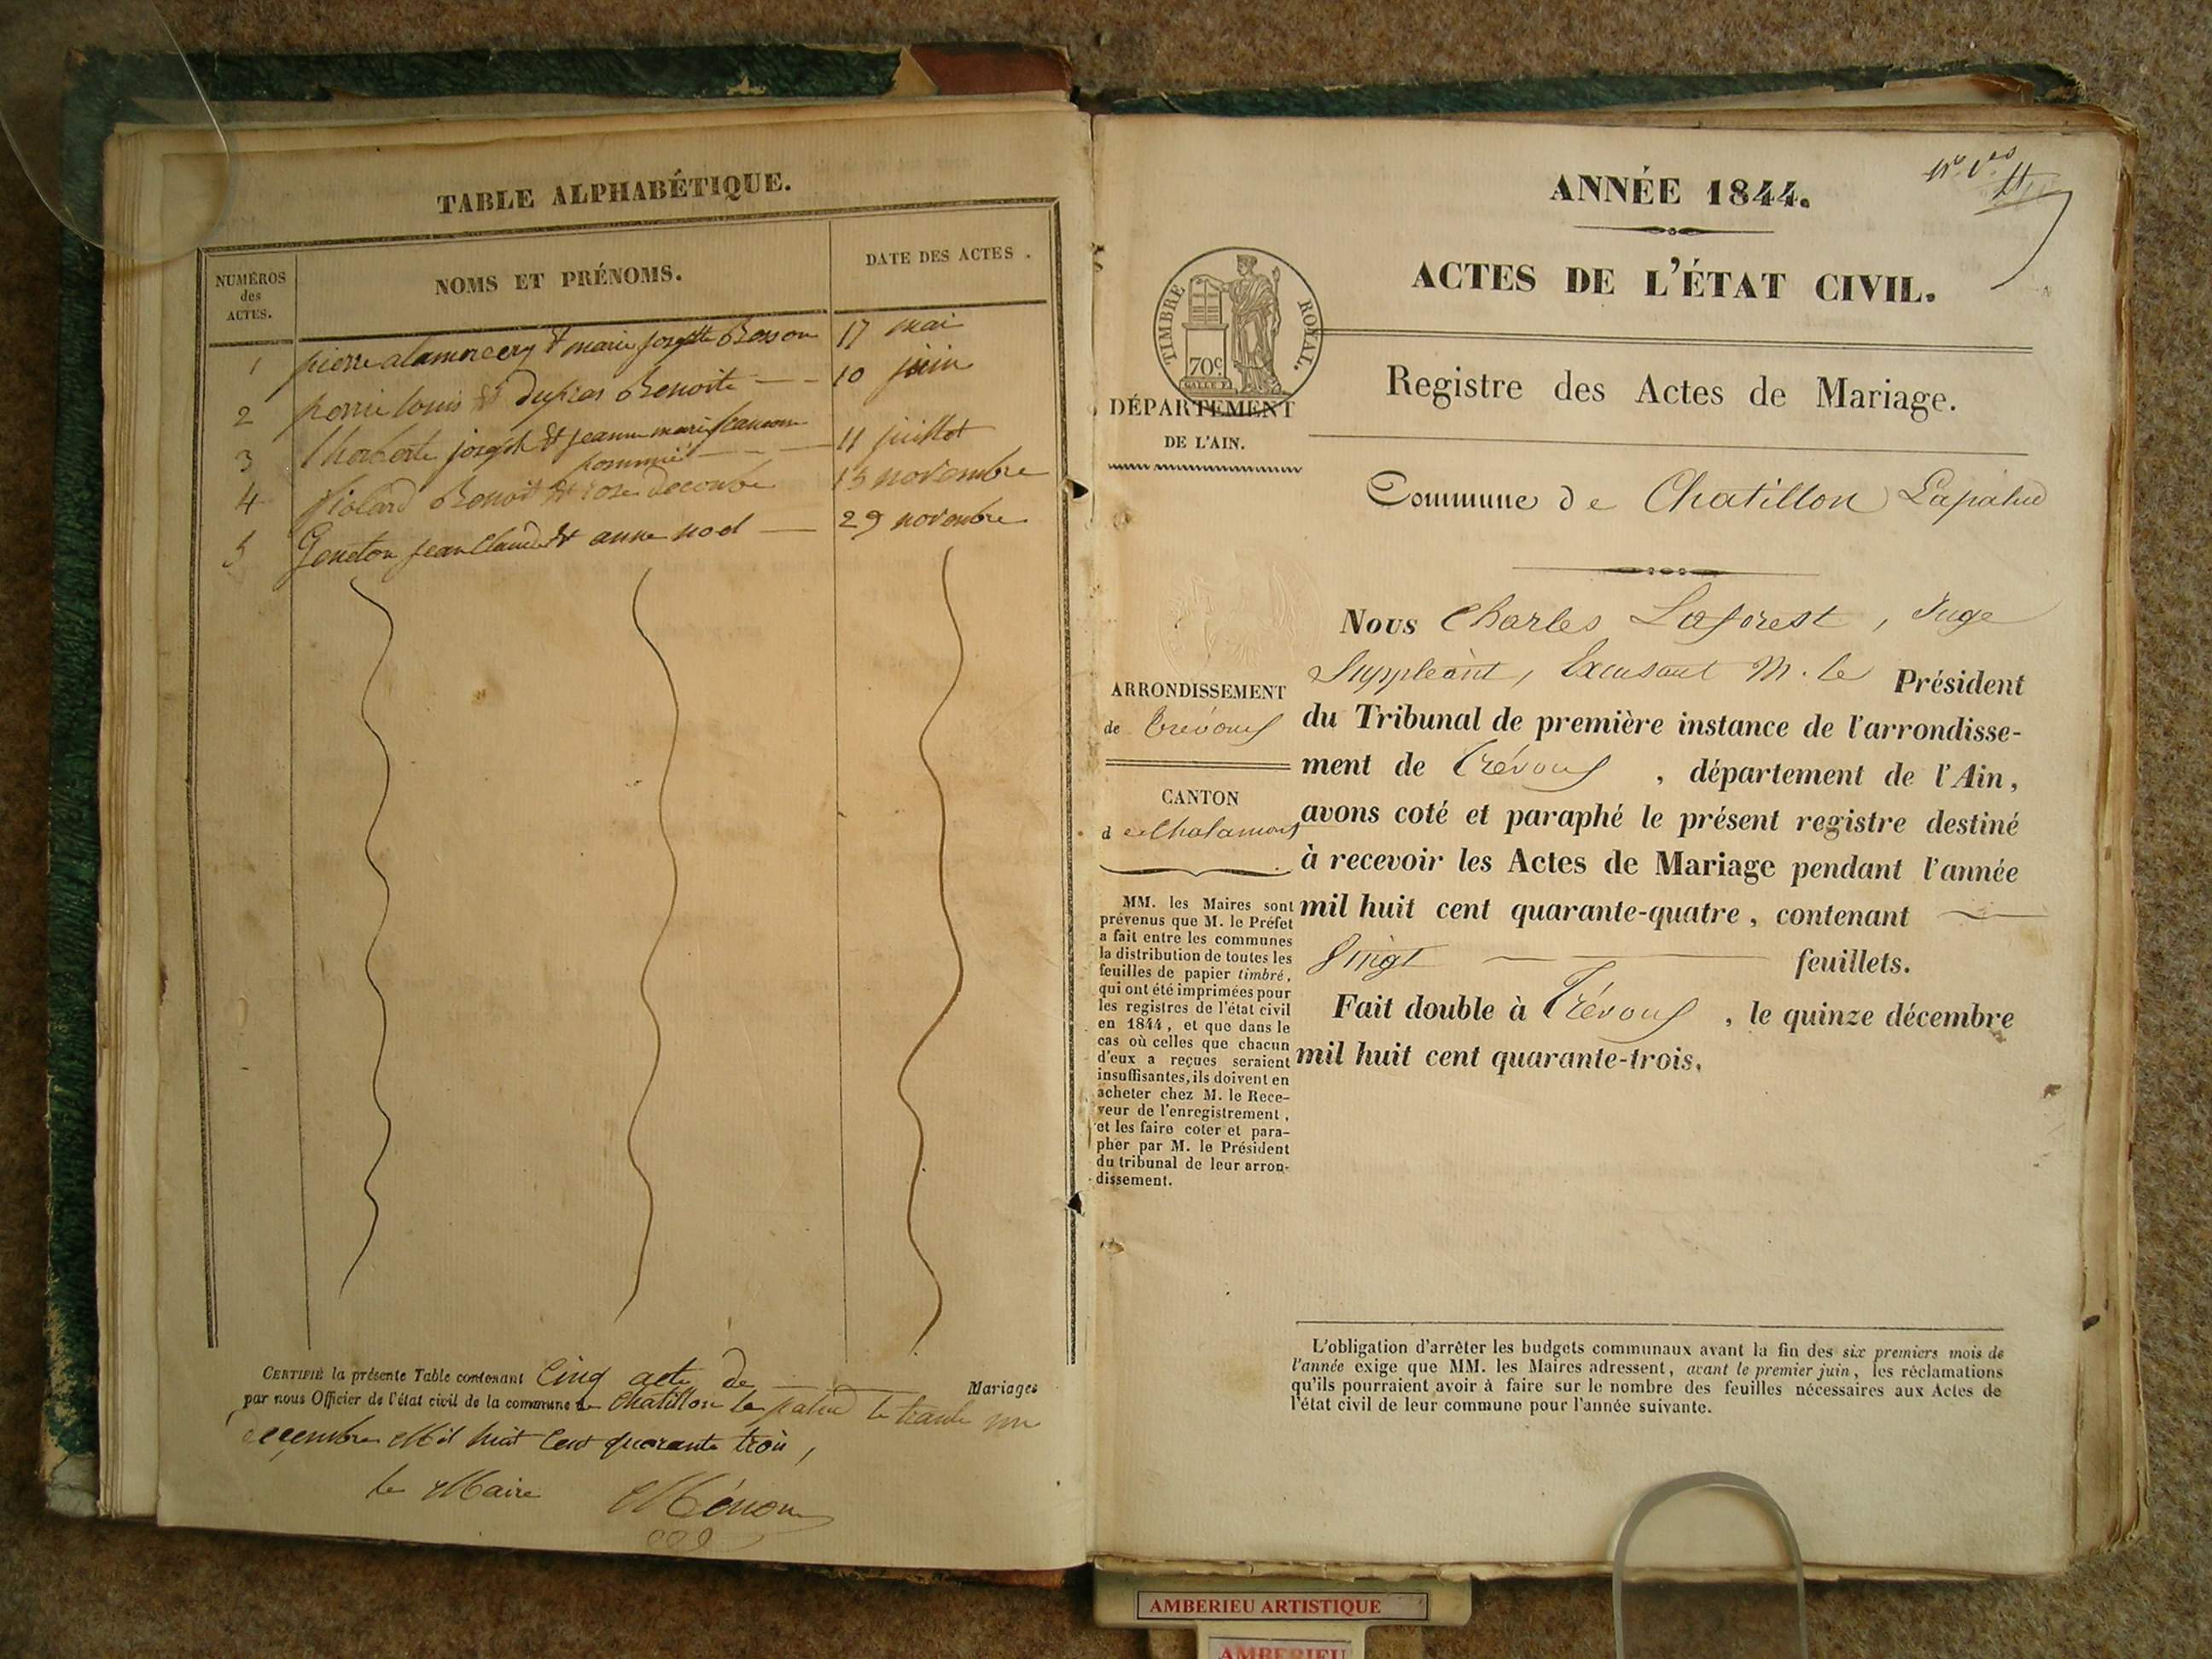 TABLE ALPHABÉTIQUE.
NUMÉROS
des
ACTES.
NOMS ET PRÉNOMS.
DATE DES ACTES.
1 pierre alamercery & marie josephte Bosson 17 mai
2 perrin louis & Benoite - - 10 juin
3 joseph & jeanne marie
pommier - - - 11 juillet
4 Violard Benoit & rose decombe 15 novembre
5 Goneton jean Claude & anne noel — 29 novembre
CERTIFIÉ la présente Table contenant Cinq acte de Mariages
par nous Officier de l'état civil de la commune de Chatillon la palud le trante un
decembre Mil huit Cent quarante trois,
le Maire Ménon
ANNÉE 1844.
ACTES DE L'ÉTAT CIVIL.
TIMBRE ROYAL.
70c
DÉPARTEMENT
DE L'AIN.
Registre des Actes de Mariage.
Commune de Chatillon Lapalud
ARRONDISSEMENT
de Trévoux
CANTON
de Chalamont
MM. les Maires sont
prévenus que M. le Préfet
a fait entre les communes
la distribution de toutes les
feuilles de papier timbré,
qui ont été imprimées pour
les registres de l'état civil
en 1844, et que dans le
cas où celles que chacun
d'eux a reçues seraient
insuffisantes, ils doivent en
acheter chez M. le Rece-
veur de l'enregistrement,
et les faire coter et para-
pher par M. le Président
du tribunal de leur arron-
dissement.
Nous Charles Laforest, Juge
Suppléant, Excusant M. le Président
du Tribunal de première instance de l'arrondisse-
ment de Trévoux, département de l'Ain,
avons coté et paraphé le présent registre destiné
à recevoir les Actes de Mariage pendant l'année
mil huit cent quarante-quatre, contenant
Vingt feuillets.
Fait double à Trévoux, le quinze décembre
mil huit cent quarante-trois.
L'obligation d'arrêter les budgets communaux avant la fin des six premiers mois de
l'année exige que MM. les Maires adressent, avant le premier juin, les réclamations
qu'ils pourraient avoir à faire sur le nombre des feuilles nécessaires aux Actes de
l'état civil de leur commune pour l'année suivante.
AMBERIEU ARTISTIQUE
AMBERIEU